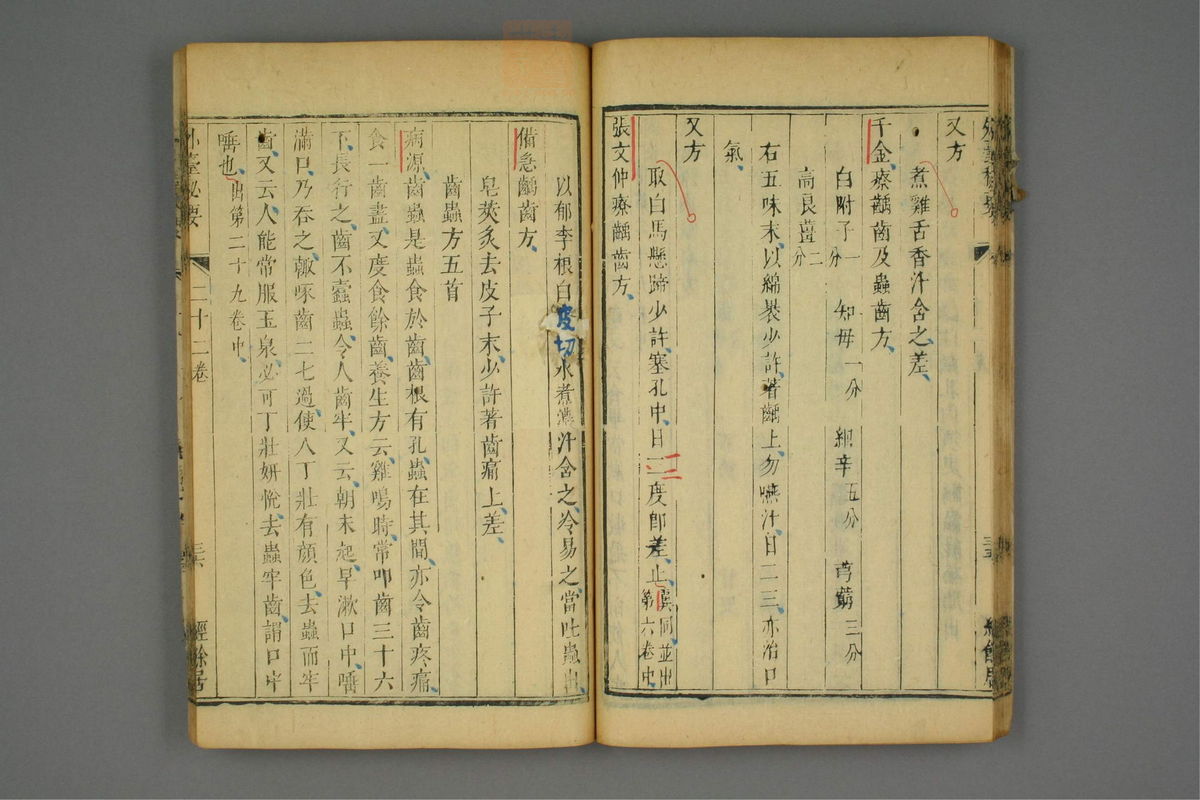 又方
煮雞舌香汁含之差
千金療齲齒及蟲齒方
白附子一分 知母一分 細辛五分 芎藭三分
高良薑二分
右五味末以綿裹少許著齲上勿嚥汁日二三亦治口
氣
又方
取白馬懸蹄少許塞孔中日二三度卽差止巽同並出第六卷中
張文仲療齲齒方
以郁李根白皮切水煮濃汁含之冷易之當吐蟲出
備急齲齒方
皂莢炙去皮子末少許著齒痛上差
齒蟲方五首
病源齒蟲是蟲食於齒齒根有孔蟲在其間亦令齒疼痛
食一齒盡又度食餘齒養生方云雞鳴時常叩齒三十六
下長行之齒不蠹蟲令人齒牢又云朝未起早漱口中唾
滿口乃吞之輒啄齒二七過使人丁壯有顏色去蟲而牢
齒又云人能常服玉泉必可丁壯妍悅去蟲牢齒謂口中
唾也出第二十九卷中
外臺秘要 二十二卷 三六 經餘居